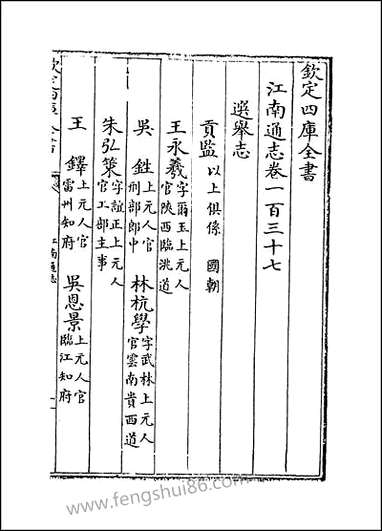 欽定四庫全書
江南通志卷一百三十七
選舉志
貢監以上俱係國朝
王永羲字爾玉上元人官陝西臨洮道
吳鉎上元人官刑部郎中 林杭學字武林上元人官雲南貴西道
朱弘策字誼正上元人官工部主事
王鐸上元人官雷州知府 吳恩景上元人官臨江知府
江南通志
www.fengshui86.com